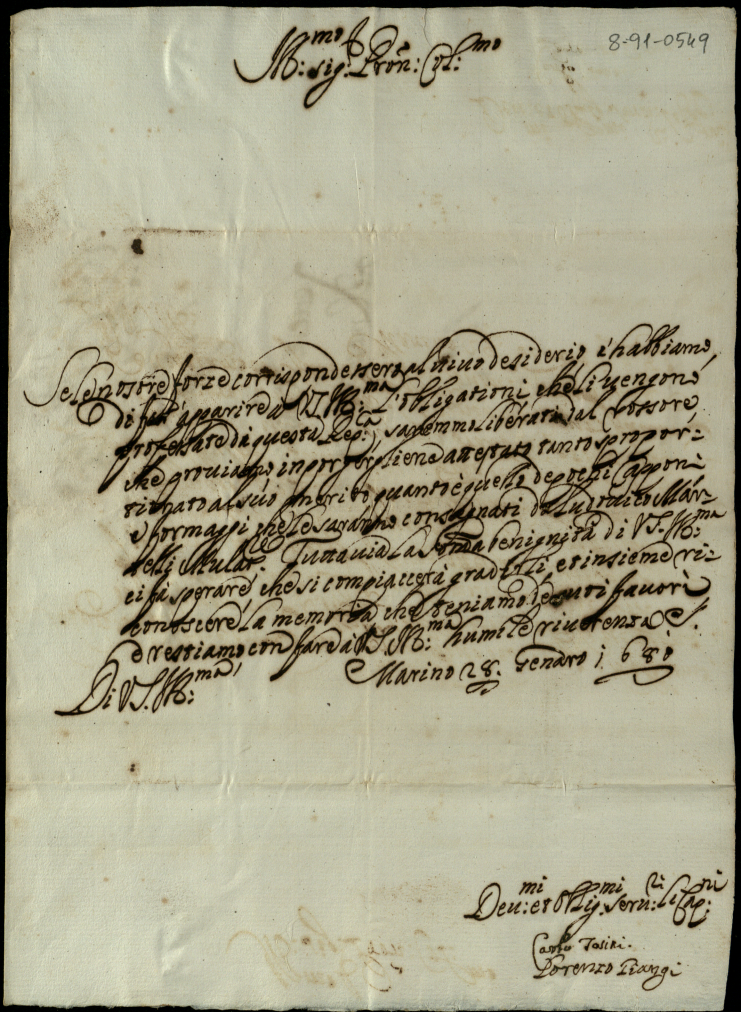 8-91-0549
Ill:mo sig:r Pron: Col:mo
Se le nostre forze corrispondessero al vivo desiderio c'habbiamo
di far apparire a V.S. Ill:ma l'obligationi, che li vengono
professate da questa Rep:ca, saremmo liberati dal rossore
che proviamo in porgergliene attestato tanto spropor-
tionato al suo merito quanto è quello de pochi Capponi
e formaggi che le saranno consegnati da Mar-
telli Mular. Tuttavia la somma benignità di V.S. Ill:ma
ci fa sperare che si compiacerà gradirli, et insieme ri-
conoscere la memoria che teniamo de suoi favori
e restiamo con fare a V.S. Ill:ma humile riverenza S.
Marino 28. Genaro 1680
Di V.S. Ill:ma
Dev:mi et Oblig:mi Serv:ri li Cap:ni
Carlo Tosini.
Lorenzo Giangi